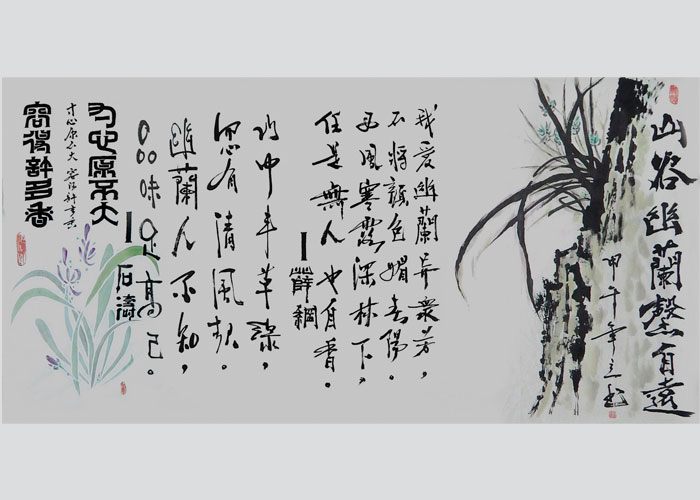 山谷幽蘭馨自遠
甲午年
我爱幽蘭异眾芳，
不將顏色媚春陽。
西風寒露深林下，
任是無人也自香。
—薛網
中丰草綠，
有清風
幽蘭人不知，
品味高已。
—石濤
寸心原不大
容得許多香
寸心原不大 容得許多香